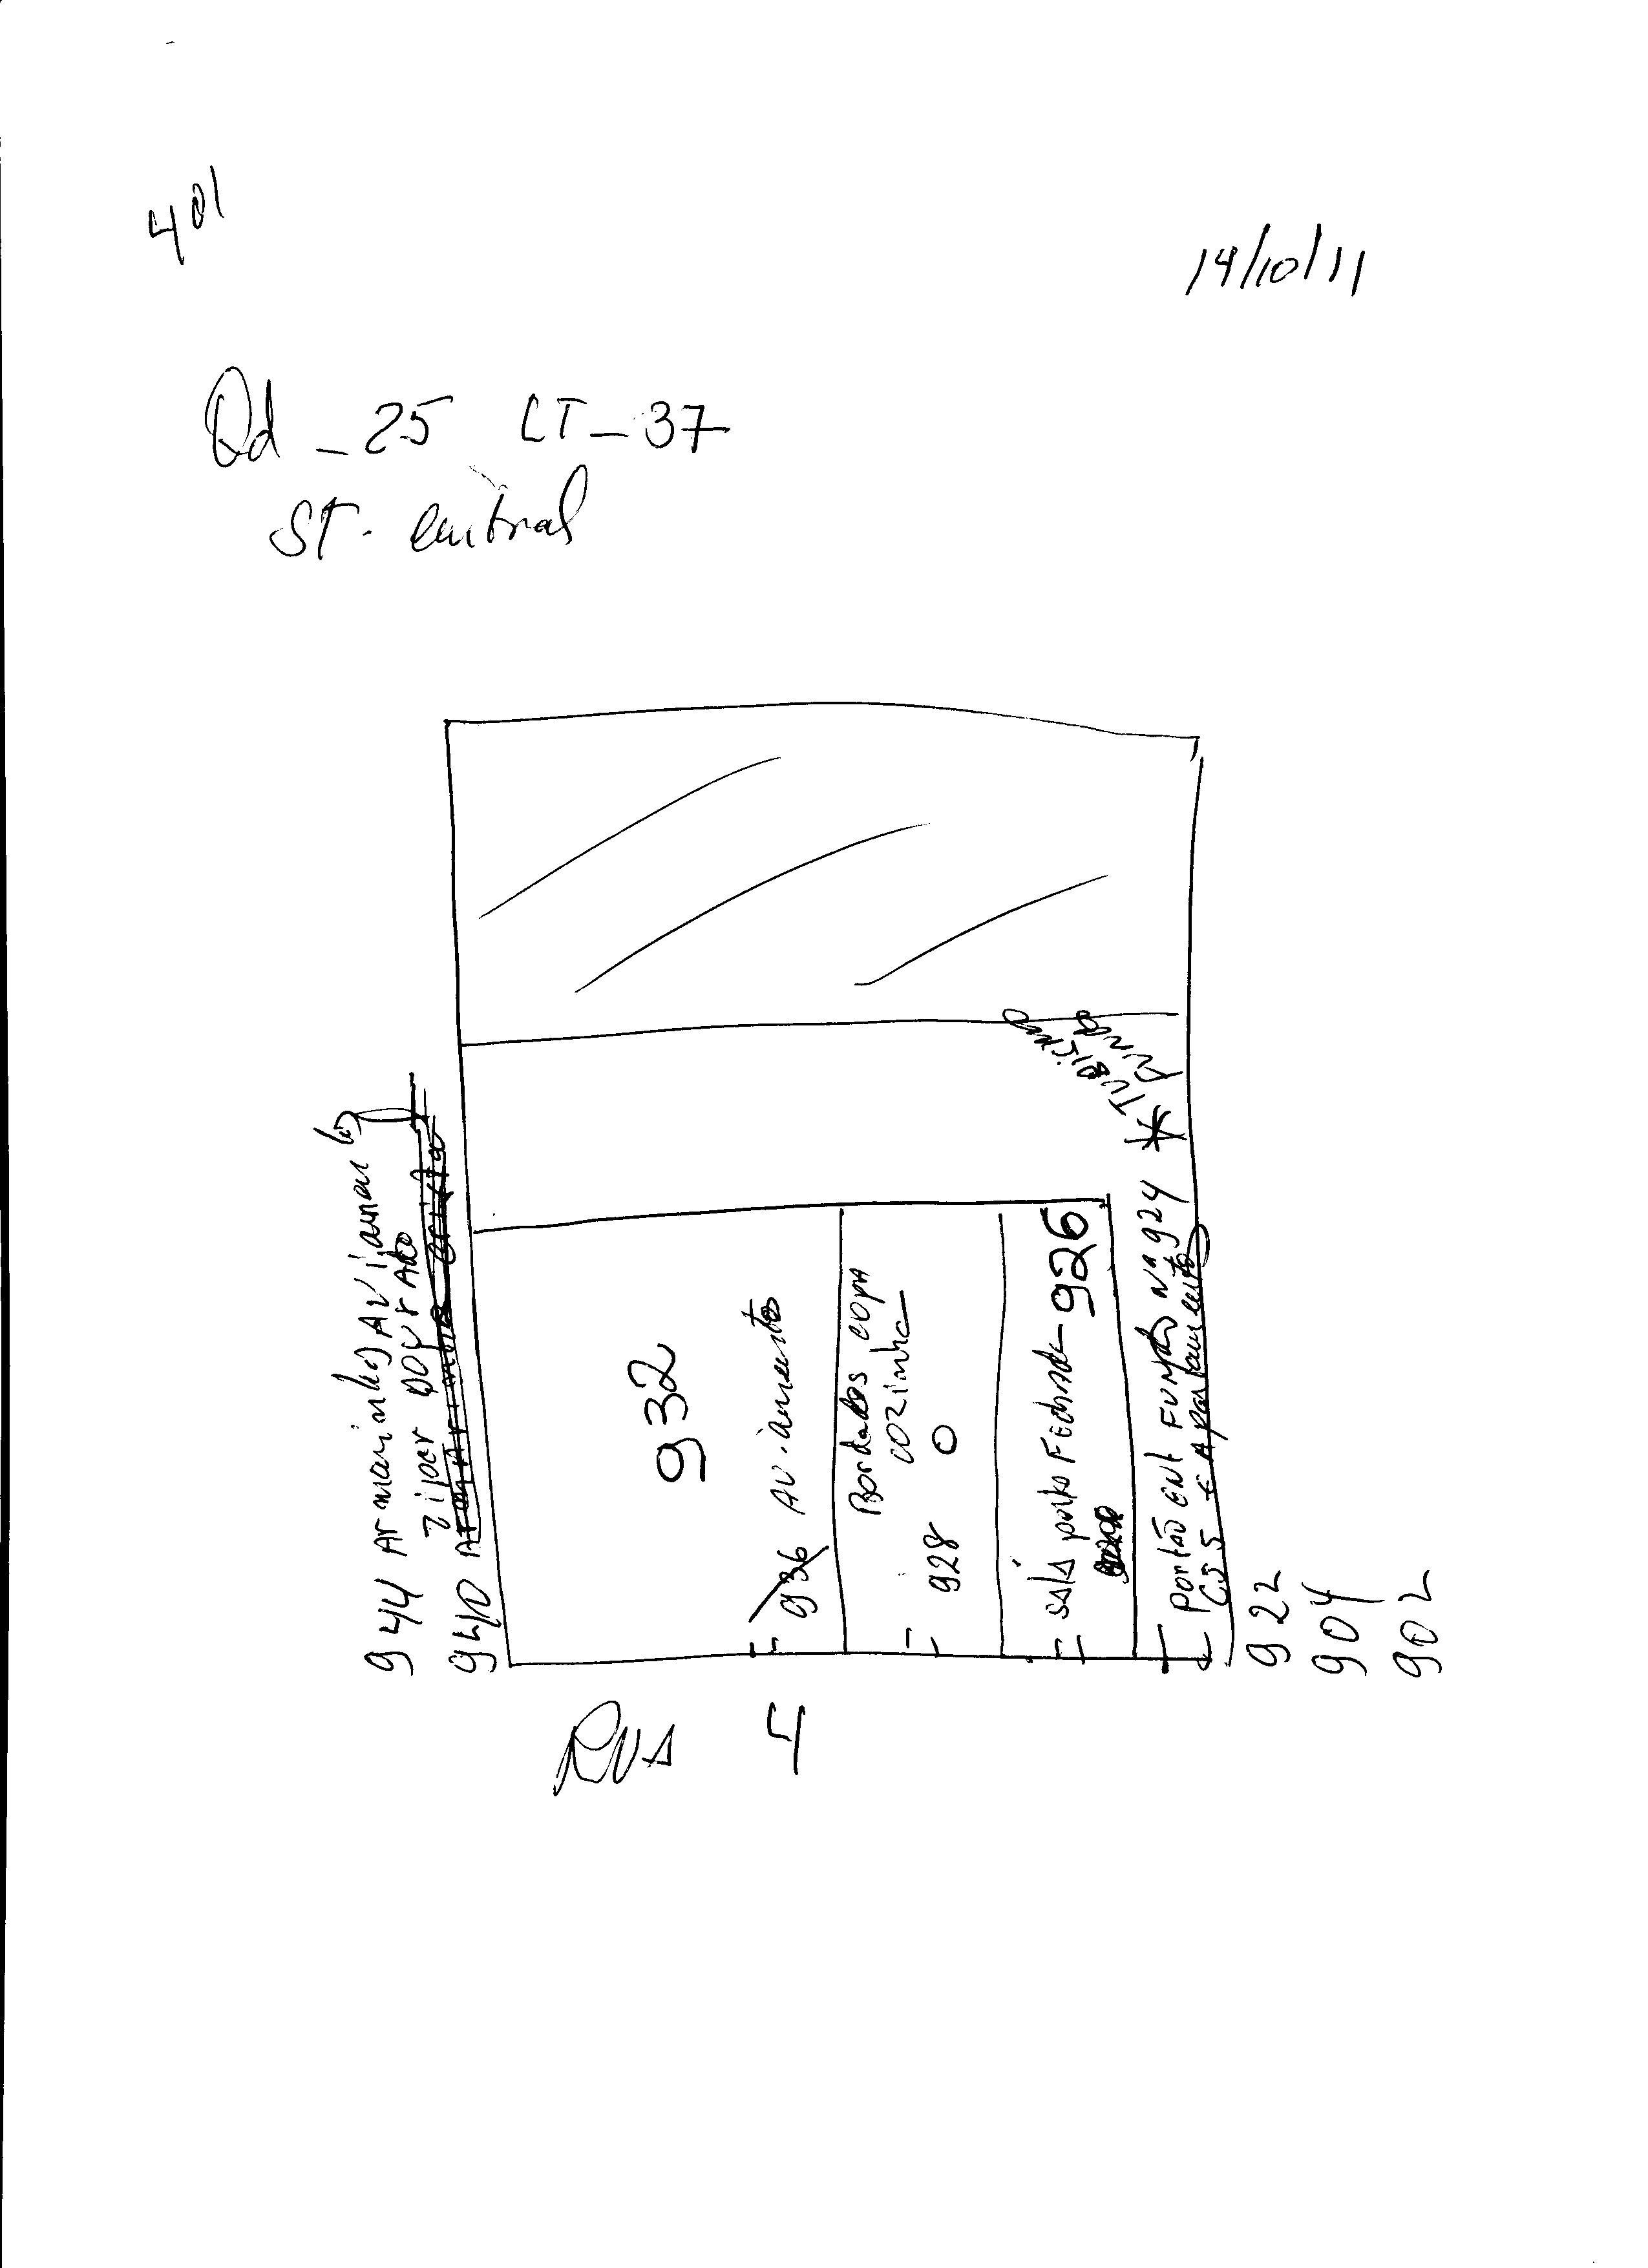 401
14/10/11
Qd - 25 LT - 37
ST. central
944 Armarinhos Aviamento
ziper Dourado
940
932
936 Aviamento
Bordados copa
cozinha
928
sala porta Fechada 926
portão ENT Fundo Nº 924
E Apartamento
922
904
902
RUA 4